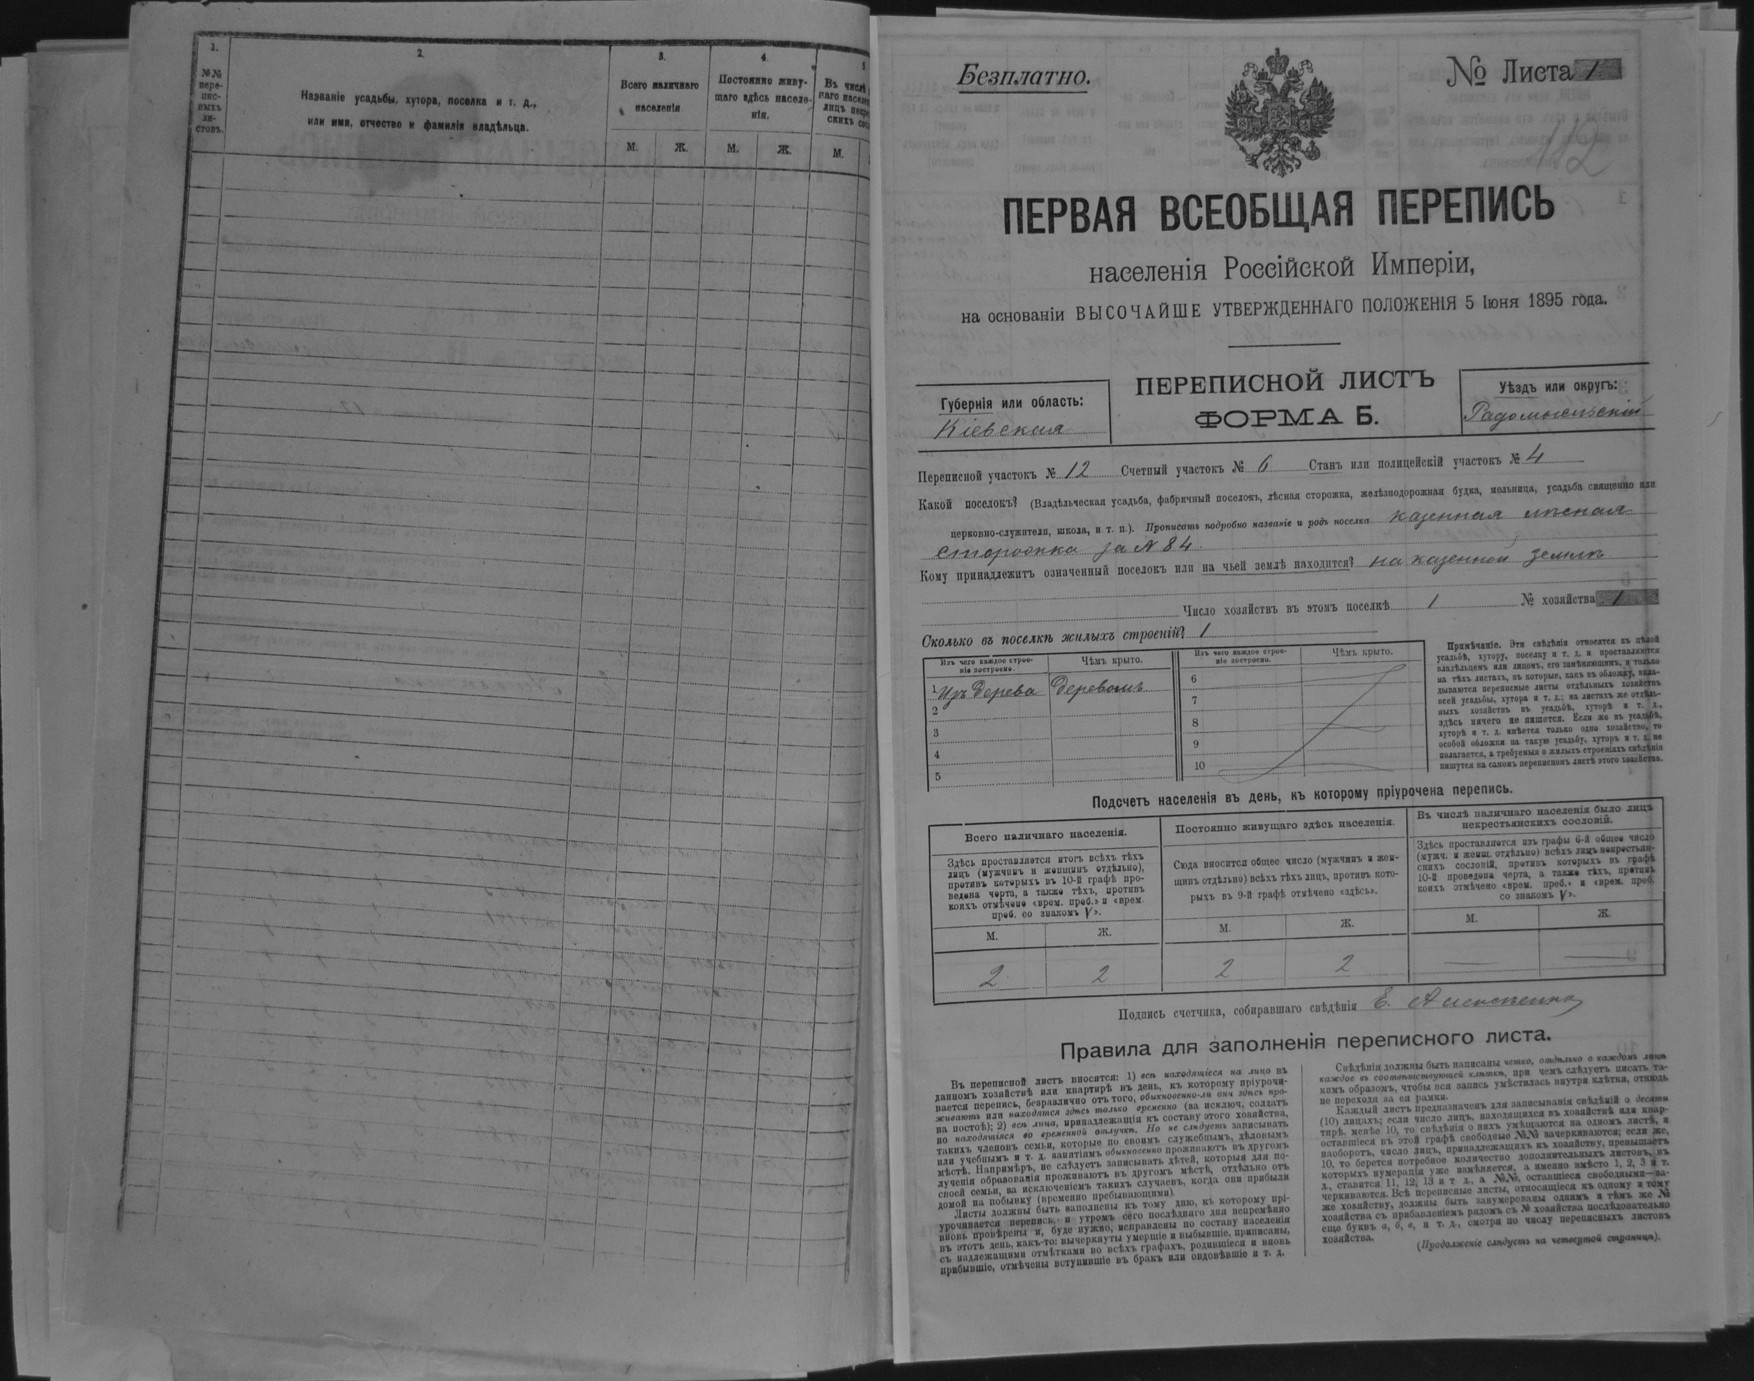 1.
2.
3.
4
5
№№ пере-
пис-
ныхъ
ли-
стовъ.
Названіе усадьбы, хутора, поселка и т. д.,
или имя, отчество и фамилія владѣльца.
Всего наличнаго
населенія
Постоянно живу-
щаго здѣсь населе-
нія.
Въ числѣ
наго населе
лицъ некре
скихъ сос
М.
Ж.
М.
Ж.
М.
Безплатно.
№ Листа 1
112
ПЕРВАЯ ВСЕОБЩАЯ ПЕРЕПИСЬ
населенія Россійской Имперіи,
на основаніи ВЫСОЧАЙШЕ УТВЕРЖДЕННАГО ПОЛОЖЕНІЯ 5 Іюня 1895 года.
Губернія или область:
Кіевская
ПЕРЕПИСНОЙ ЛИСТЪ
ФОРМА Б.
Уѣздъ или округъ:
Радомысльскій
Переписной участокъ № 12 Счетный участокъ № 6 Станъ или полицейскій участокъ № 4
Какой поселокъ? (Владѣльческая усадьба, фабричный поселокъ, лѣсная сторожка, желѣзнодорожная будка, мельница, усадьба священно или
церковно-служителя, школа, и т. п.). Прописать подробно названіе и родъ поселка казенная лѣсная
сторожка за № 84
Кому принадлежитъ означенный поселокъ или на чьей землѣ находится? на казенной землѣ
Число хозяйствъ въ этомъ поселкѣ 1 № хозяйства 1
Сколько въ поселкѣ жилыхъ строеній? 1
Изъ чего каждое строе-
ніе построено.
Чѣмъ крыто.
Изъ чего каждое строе-
ніе построено.
Чѣмъ крыто.
1 Изъ дерева Деревомъ
2
3
4
5
6
7
8
9
10
Примѣчаніе. Эти свѣдѣнія относятся къ цѣлой
усадьбѣ, хутору, поселку и т. д. и проставляются
владѣльцемъ или лицомъ, его замѣняющимъ, и только
на тѣхъ листахъ, въ которые, какъ въ обложку, вкла-
дываются переписные листы отдѣльныхъ хозяйствъ
всей усадьбы, хутора и т. д.; на листахъ же отдѣль-
ныхъ хозяйствъ въ усадьбѣ, хуторѣ и т. д.,
здѣсь ничего не пишется. Если же въ усадьбѣ,
хуторѣ и т. д. имѣется только одно хозяйство, то
особой обложки на такую усадьбу, хуторъ и т. д. не
полагается, а требуемыя о жилыхъ строеніяхъ свѣдѣнія
пишутся на самомъ переписномъ листѣ этого хозяйства.
Подсчетъ населенія въ день, къ которому пріурочена перепись.
Всего наличнаго населенія.
Здѣсь проставляется итогъ всѣхъ тѣхъ
лицъ (мужчинъ и женщинъ отдѣльно),
противъ которыхъ въ 10-й графѣ про-
ведена черта, а также тѣхъ, противъ
коихъ отмѣчено «врем. преб.» и «врем.
преб. со знакомъ V».
Постоянно живущаго здѣсь населенія.
Сюда вносится общее число (мужчинъ и жен-
щинъ отдѣльно) всѣхъ тѣхъ лицъ, противъ кото-
рыхъ въ 9-й графѣ отмѣчено «здѣсь».
Въ числѣ наличнаго населенія было лицъ
некрестьянскихъ сословій.
Здѣсь проставляется изъ графы 6-й общее число
(мужч. и женщ. отдѣльно) всѣхъ лицъ некрестьян-
скихъ сословій, противъ которыхъ въ графѣ
10-й проведена черта, а также тѣхъ, противъ
коихъ отмѣчено «врем. преб.» и «врем. преб.
со знакомъ V».
М. Ж. М. Ж. М. Ж.
2 2 2 2 — —
Подпись счетчика, собиравшаго свѣдѣнія Е.
Правила для заполненія переписного листа.
Въ переписной листъ вносятся: 1) всѣ находящіеся на лицо въ
данномъ хозяйствѣ или квартирѣ въ день, къ которому пріурочи-
вается перепись, безразлично отъ того, обыкновенно-ли они здѣсь про-
живаютъ или находятся здѣсь только временно (за исключ. солдатъ
на постоѣ); 2) всѣ лица, принадлежащія къ составу этого хозяйства,
но находящіяся во временной отлучкѣ. Но не слѣдуетъ записывать
такихъ членовъ семьи, которые по своимъ служебнымъ, дѣловымъ
или учебнымъ и т. д. занятіямъ обыкновенно проживаютъ въ другомъ
мѣстѣ. Напримѣръ, не слѣдуетъ записывать дѣтей, которыя для по-
лученія образованія проживаютъ въ другомъ мѣстѣ, отдѣльно отъ
своей семьи, за исключеніемъ такихъ случаевъ, когда они прибыли
домой на побывку (временно пребывающими).
Листы должны быть заполнены къ тому дню, къ которому прі-
урочивается перепись, и утромъ сего послѣдняго дня непремѣнно
вновь провѣрены и, буде нужно, исправлены по составу населенія
въ этотъ день, какъ-то: вычеркнуты умершіе и выбывшіе, приписаны,
съ надлежащими отмѣтками во всѣхъ графахъ, родившіеся и вновь
прибывшіе, отмѣчены вступившіе въ бракъ или овдовѣвшіе и т. д.
Свѣдѣнія должны быть написаны четко, отдѣльно о каждомъ лицѣ
каждое въ соотвѣтствующей клѣткѣ, при чемъ слѣдуетъ писать та-
кимъ образомъ, чтобы вся запись умѣстилась внутри клѣтки, отнюдь
не переходя за ея рамки.
Каждый листъ предназначенъ для записыванія свѣдѣній о десяти
(10) лицахъ; если число лицъ, находящихся въ хозяйствѣ или квар-
тирѣ, менѣе 10, то свѣдѣнія о нихъ умѣщаются на одномъ листѣ, а
оставшіеся въ этой графѣ свободные №№ зачеркиваются; если же,
наоборотъ, число лицъ, принадлежащихъ къ хозяйству, превышаетъ
10, то берется потребное количество дополнительныхъ листовъ, въ
которыхъ нумерація уже измѣняется, а именно вмѣсто 1, 2, 3 и т.
д., ставится 11, 12, 13 и т. д., а №№, оставшіеся свободными—за-
черкиваются. Всѣ переписные листы, относящіеся къ одному и тому
же хозяйству, должны быть занумерованы однимъ и тѣмъ же №
хозяйства съ прибавленіемъ рядомъ съ № хозяйства послѣдовательно
еще буквъ а, б, в, и т. д., смотря по числу переписныхъ листовъ
хозяйства.
(Продолженіе слѣдуетъ на четвертой страницѣ).